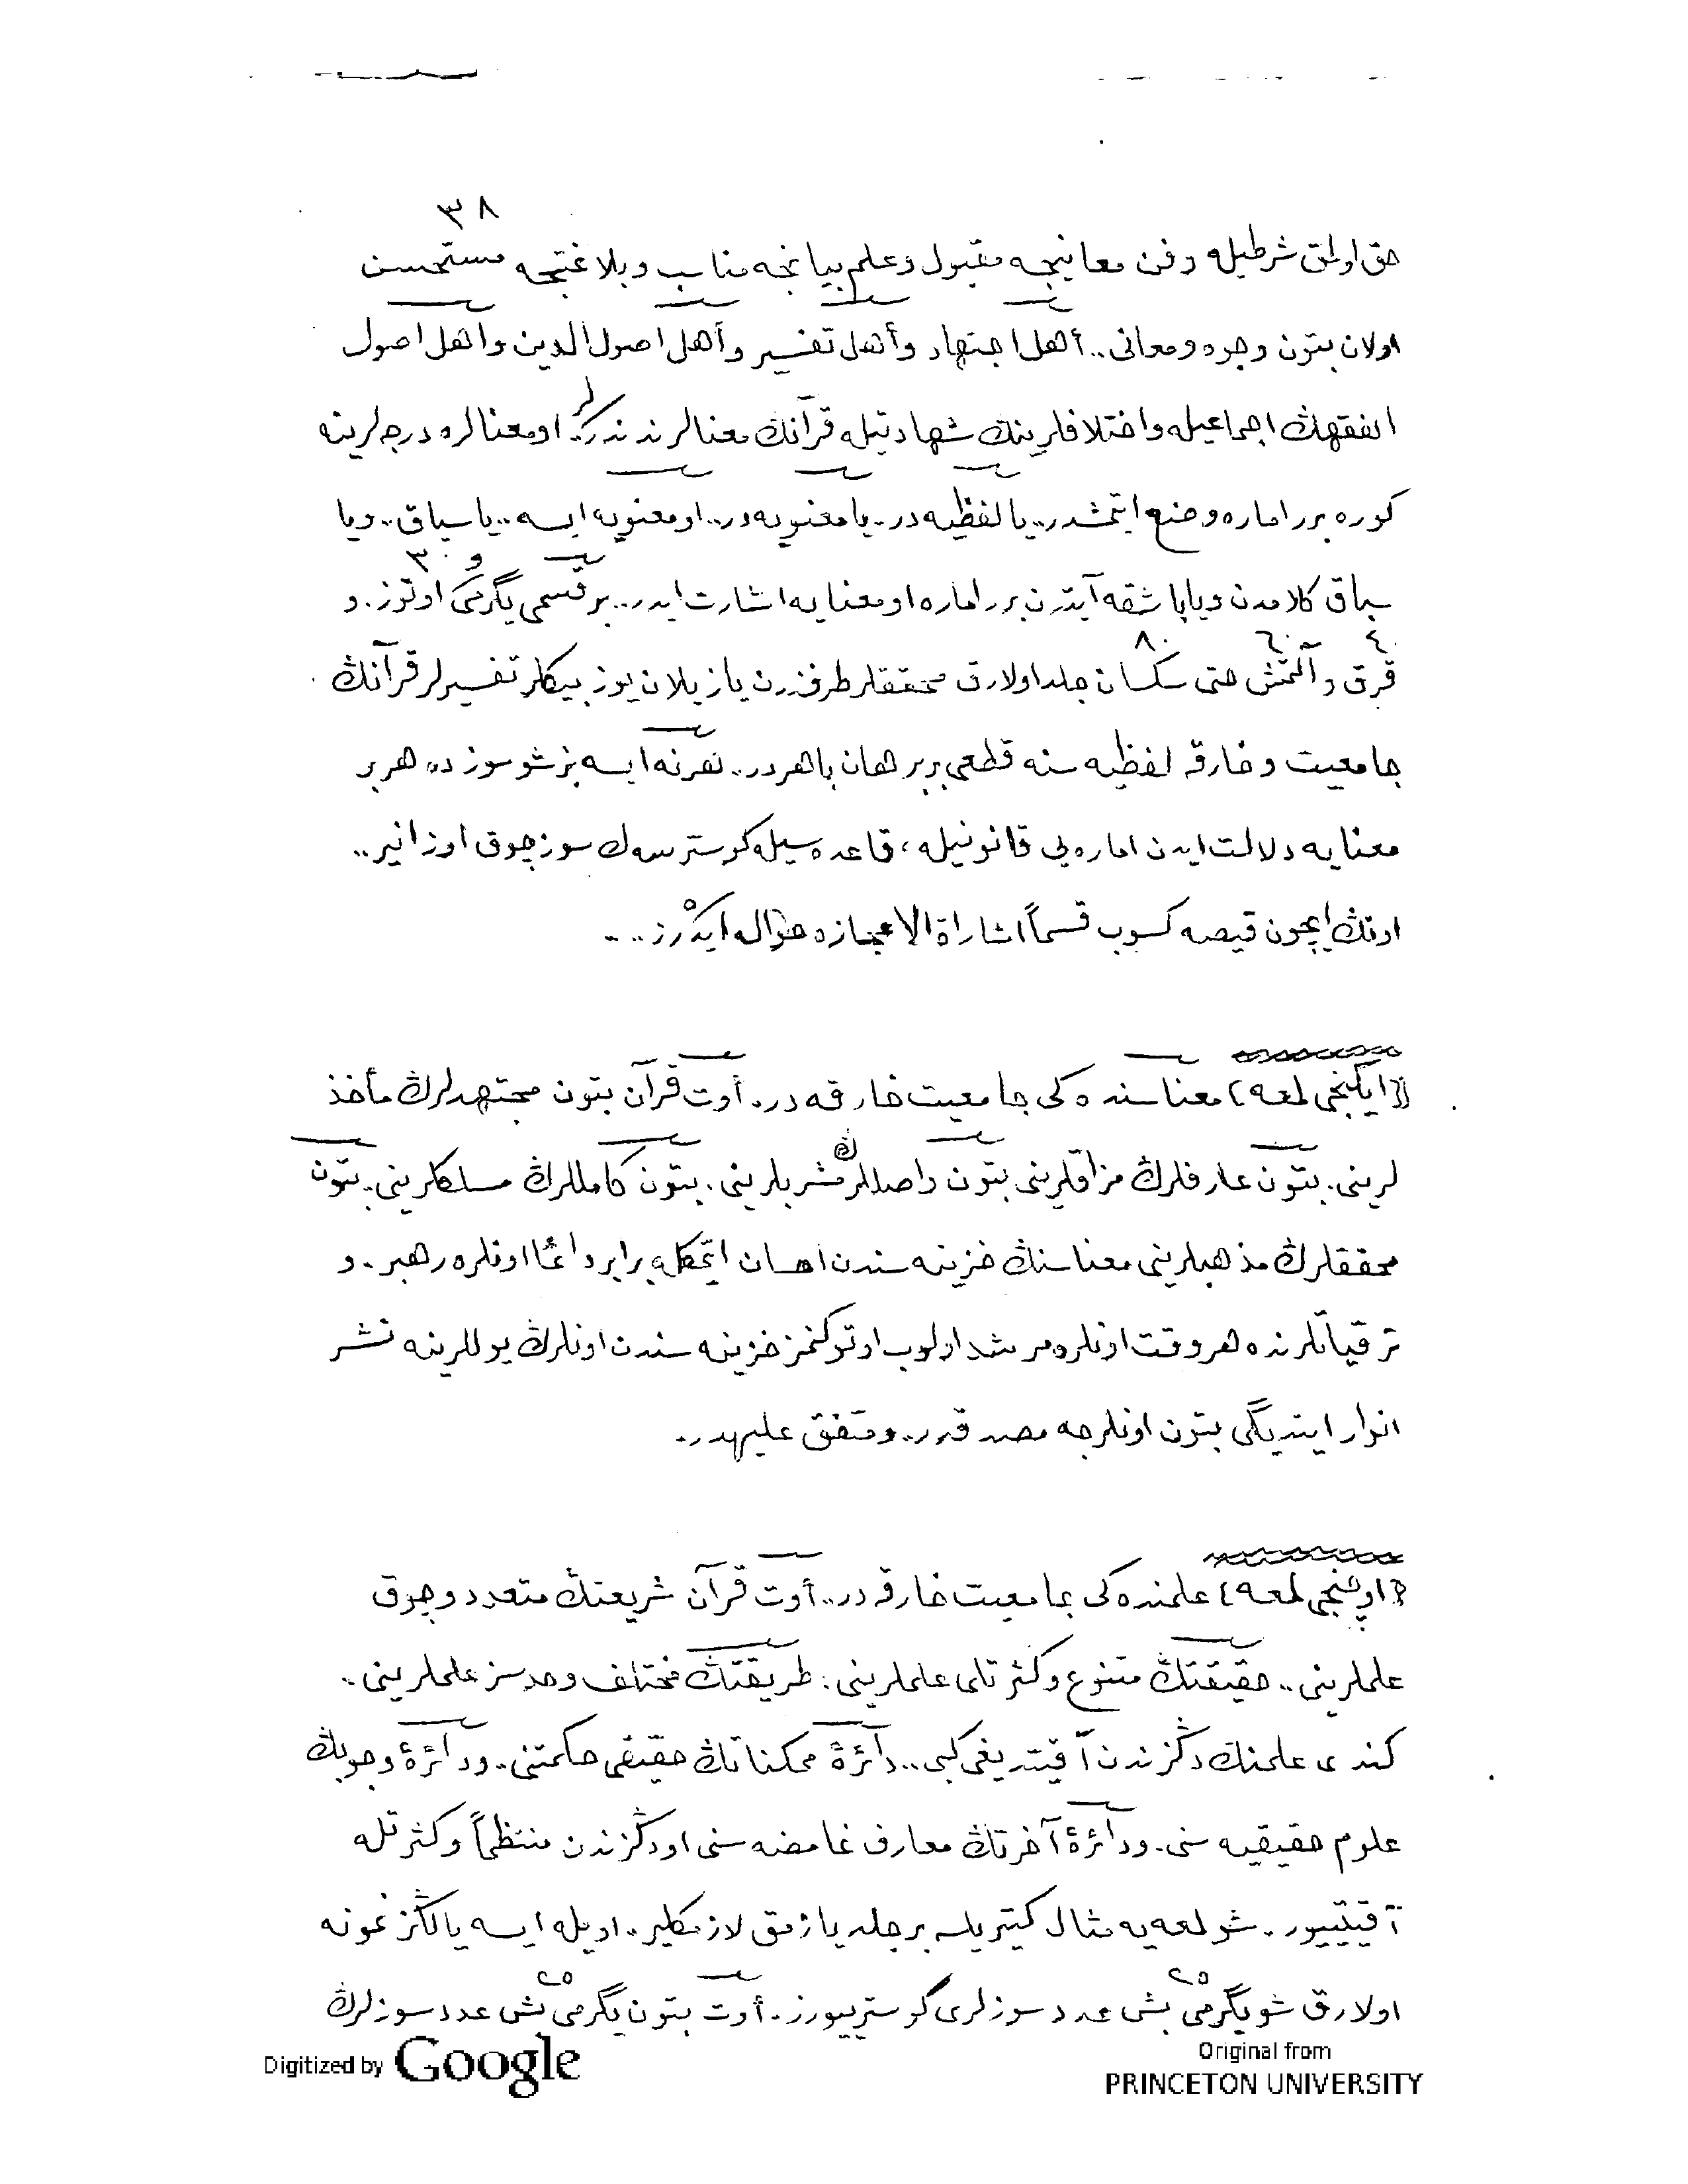 ٣٨
حق اولمق شرطيله وفن معانيجه مقبول وعلم بيانجه مناسب وبلاغتجه مستحسن
اولان بتون وجوه ومعانى.. أهل اجتهاد وأهل تفسير وأهل اصول الدين واهل اصول
الفقهڭ اجماعيله واختلافلرينڭ شهادتيله قرآنڭ معنالرندندرلر. اومعنالره درجه لرينه
كوره برر اماره وضع ايتمشدر.. يا لفظيه در.. يا معنويه در.. او معنويه ايسه.. يا سياق.. ويا
سباق كلامدن ويا باشقه آيتدن برر اماره او معنايه اشارت ايدر.. بر قسمى يگرمى و اوتوز. و ٣٠
قرق و آلتمش حتى سكسان جلد اولارق محققلر طرفندن يازيلان يوز بيكلر تفسيرلر قرآنڭ ٤٠ ٦٠ ٨٠
جامعيت وخارقۀ لفظيه سنه قطعى برر برهان باهردر.. هرنه ايسه بز شو سوزده هر بر
معنايه دلالت ايدن اماره يى قانونيله، قاعده سيله كوسترسه ك سوز چوق اوزانير..
اونڭ ايچون قيصه كسوب قسماً اشاراة الاعجازه حواله ايدرز...
(ايكنجى لمعه) معناسنده كى جامعيت خارقه در. أوت قرآن بتون مجتهدلرڭ مأخذ
لرينى. بتون عارفلرڭ مذاقلرينى بتون واصللرڭ مشربلرينى. بتون كامللرڭ مسلكلرينى. بتون
محققلرڭ مذهبلرينى معناسنڭ خزينه سندن احسان ايتمكله برابر دائما اونلره رهبر. و
ترقياتلرنده هر وقت اونلره مرشد اولوب او توكنمز خزينه سندن اونلرڭ يوللرينه نشر
انوار ايتديگى بتون اونلرجه مصدقدر.. ومتفق عليهدر..
(اوچنجى لمعه) علمنده كى جامعيت خارقه در.. أوت قرآن شريعتڭ متعدد وچوق
علملرينى.. حقيقتڭ متنوع وكثرتلى علملرينى. طريقتڭ مختلف وحدسز علملرينى..
كندى علمنڭ دڭزندن آقيتديغى كبى.. دآئرۀ ممكناتڭ حقيقى حكمتنى.. ودآئرۀ وجوبڭ
علوم حقيقيه سنى. ودآئرۀ آخرتڭ معارف غامضه سنى او دڭزندن منتظماً وكثرتله
آقيتييور. شو لمعه يه مثال كتيريلسه بر جلد يازمق لازمكلير. اويله ايسه يالڭز نمونه
اولارق شو يگرمى بش عدد سوزلرى كوسترييورز. أوت بتون يگرمى بش عدد سوزلرڭ ٢٥ ٢٥
Digitized by Google
Original from
PRINCETON UNIVERSITY